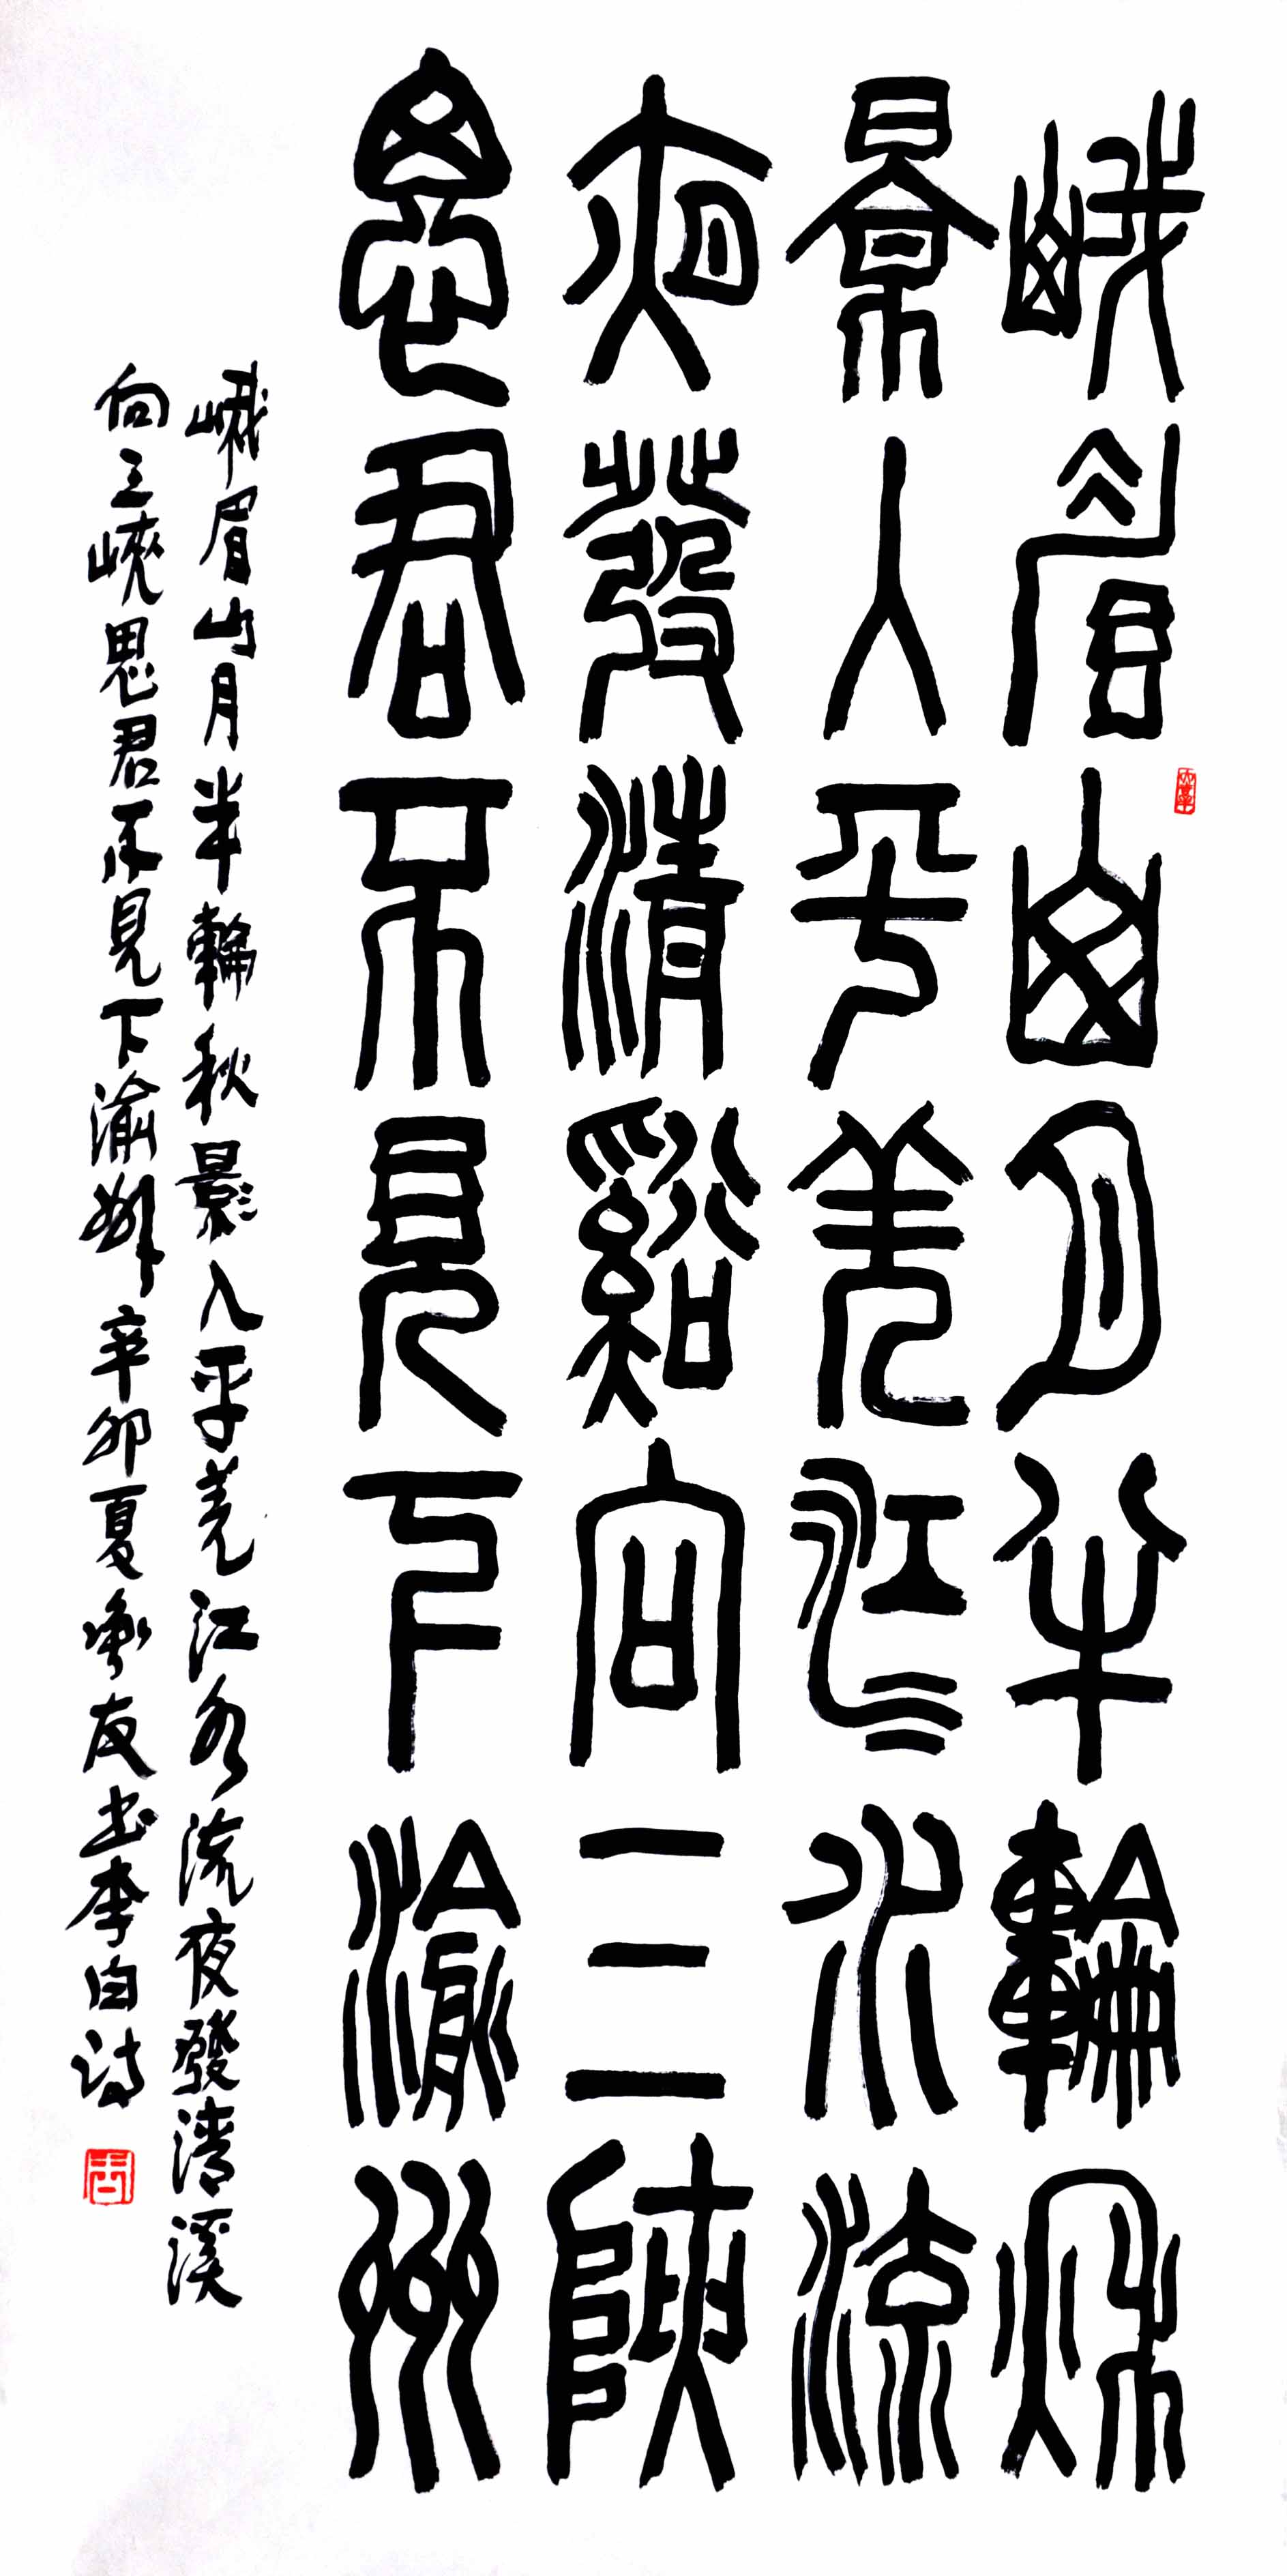 峨眉山月半輪秋
景入平羌江水流
夜發清谿向三陜
思君不見下渝州
峨眉山月半輪秋影入平羌江水流夜發清溪
向三峽思君不見下渝州辛卯夏承友书李白詩